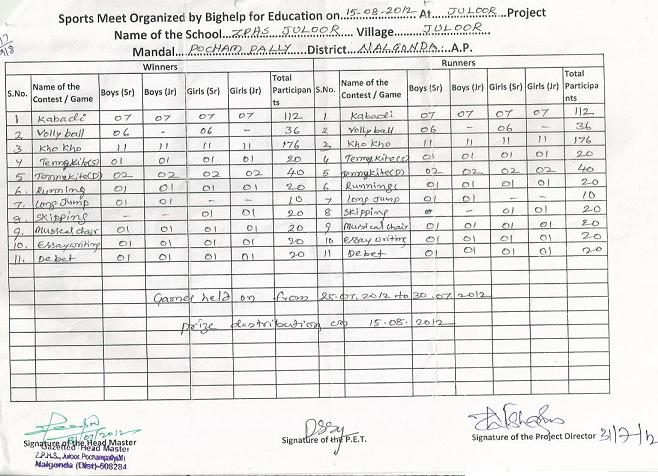 Sports Meet Organized by Bighelp for Education on...15-08-2012 At...JULOOR...Project
Name of the School...ZPHS, JULOOR...Village...JULOOR...
Mandal...POCHAM PALLY...District...NALGONDA...A.P.
Winners Runners
S.No. Name of the Contest / Game Boys (Sr) Boys (Jr) Girls (Sr) Girls (Jr) Total Participan ts S.No. Name of the Contest / Game Boys (Sr) Boys (Jr) Girls (Sr) Girls (Jr) Total Participa nts
1 Kabadi 07 07 07 07 112 1 Kabadi 07 07 07 07 112
2 Vollyball 06 - 06 - 36 2 Vollyball 06 - 06 - 36
3 Kho Kho 11 11 11 11 176 3 Kho Kho 11 11 11 11 176
4 Tennykite(s) 01 01 01 01 20 4 Tennykite(s) 01 01 01 01 20
5 Tennykite(D) 02 02 02 02 40 5 Tennykite(D) 02 02 02 02 40
6. Running 01 01 01 01 20 6 Runnings 01 01 01 01 20
7. Long Jump 01 01 - - 10 7 long Jump 01 01 - - 10
8. Skipping - - 01 01 20 8 Skipping - 01 01 20
9. Musical chair 01 01 01 01 20 9 Musical chair 01 01 01 01 20
10. Essay writing 01 01 01 01 20 10 Essay writing 01 01 01 01 20
11. Debet 01 01 01 01 20 11 Debet 01 01 01 01 20
Games held on from 25.07.2012 to 30.07.2012
Prize distribution on 15-08-2012
31/07/2012
Signature of the Head Master Signature of the P.E.T. Signature of the Project Director 31/7/12
Gazetted Head Master
Z.P.H.S., Juloor, Pochampally(M)
Nalgonda (Dist)-508284